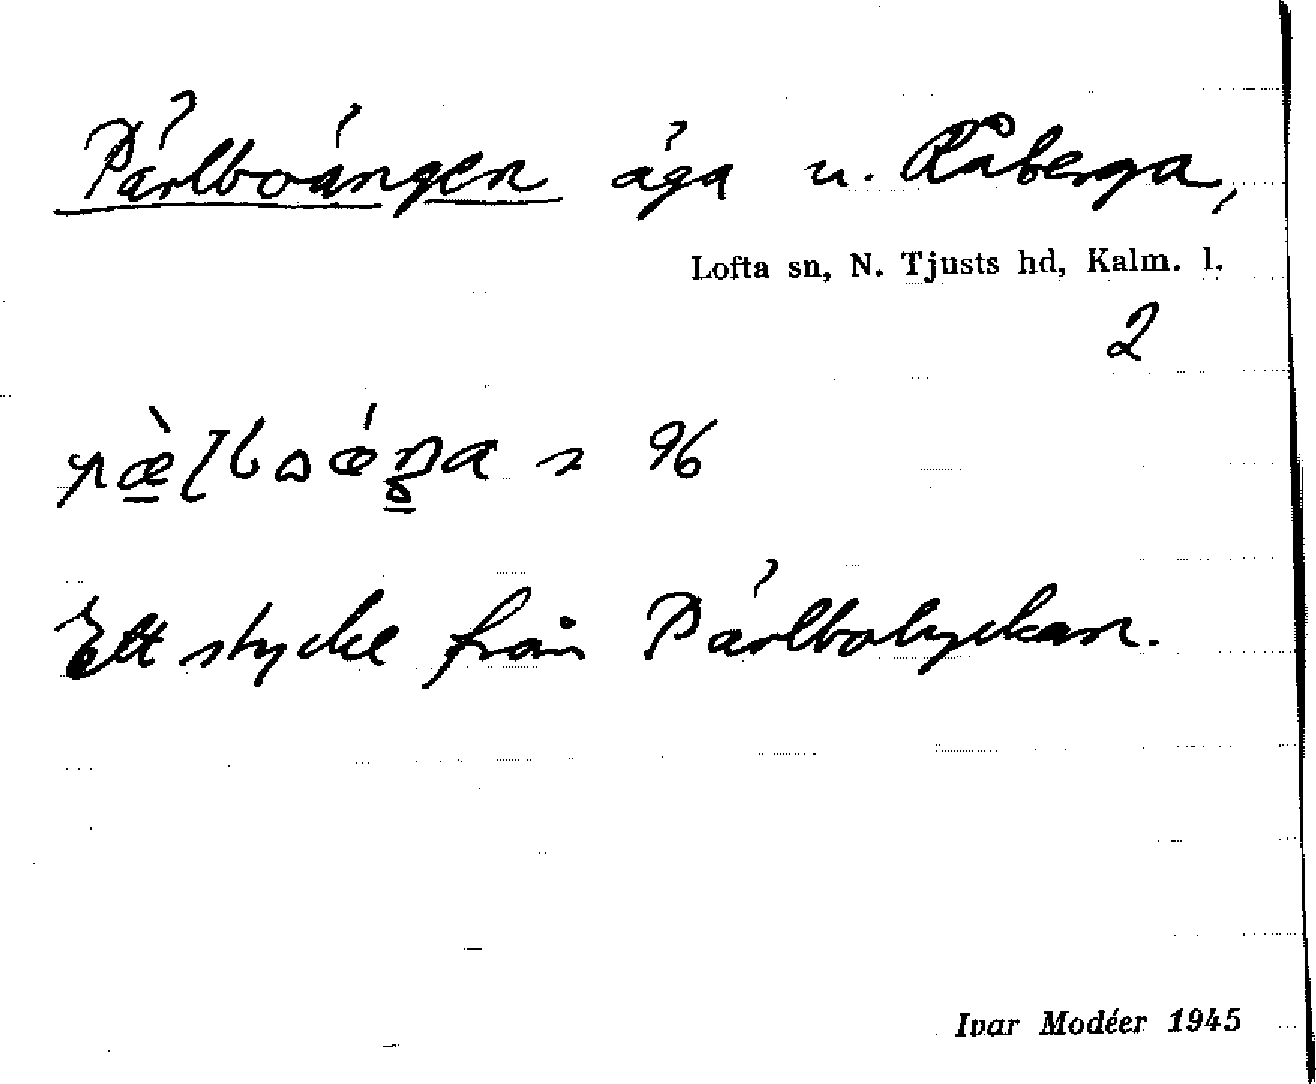 Pärlboängen äga u. Råberga,
Lofta sn, N. Tjusts hd, Kalm. l.
2
Ett stycke från Pärlbolyckan.
Ivar Modéer 1945